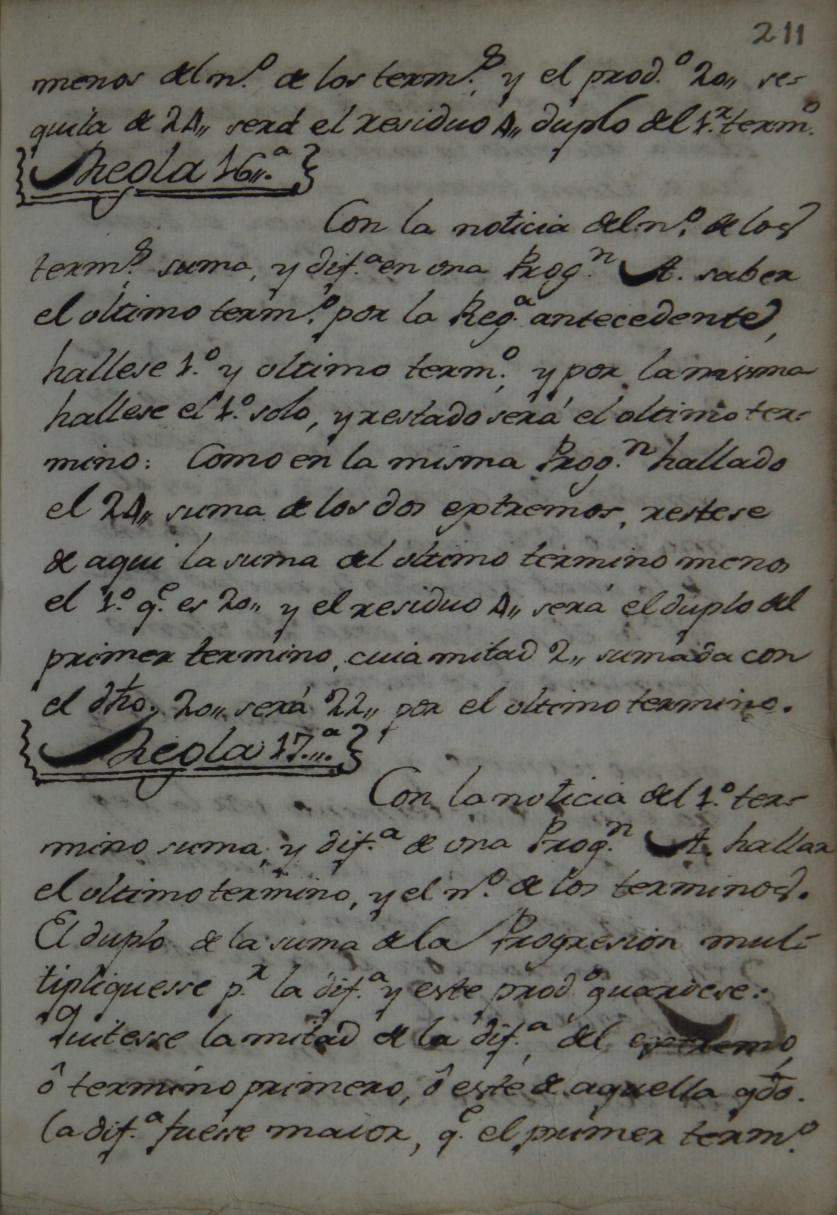 211
menos del n.º de los term.ˢ y el prod.º 20,, se-
quita de 24,, será el residuo 4,, duplo del 1.ʳ term.º
Regla 16,,.ª
Con la noticia del n.º de los
term.ˢ suma, y dif.ª en una Prog.ⁿ A. saber
el ultimo term.º por la Reg.ª antecedente,
hallese 1.º y ultimo term.º, y por la misma
hallese el 1.º solo, y restado será el ultimo ter-
mino: Como en la misma Prog.ⁿ hallado
el 24,, suma de los dos extremos, restese
de aqui la suma del ultimo termino menos
el 1.º q.ᵉ es 20,, y el residuo 4,, será el duplo del
primer termino, cuia mitad 2,, sumada con
el dho. 20,, será 22,, por el ultimo termino.
Regla 17,,.ª
Con la noticia del 1.º ter-
mino suma, y dif.ª de una Prog.ⁿ A. hallar
el ultimo termino, y el n.º de los terminos.
El duplo de la suma de la Progresion mul-
tipliquesse p.ʳ la dif.ª y este prod.º guardese:
Quitesse la mitad de la dif.ª del extremo,
ô termino primero, ô esté de aquella qdo.
la dif.ª fuesse maior, q.ᵉ el primer term.º